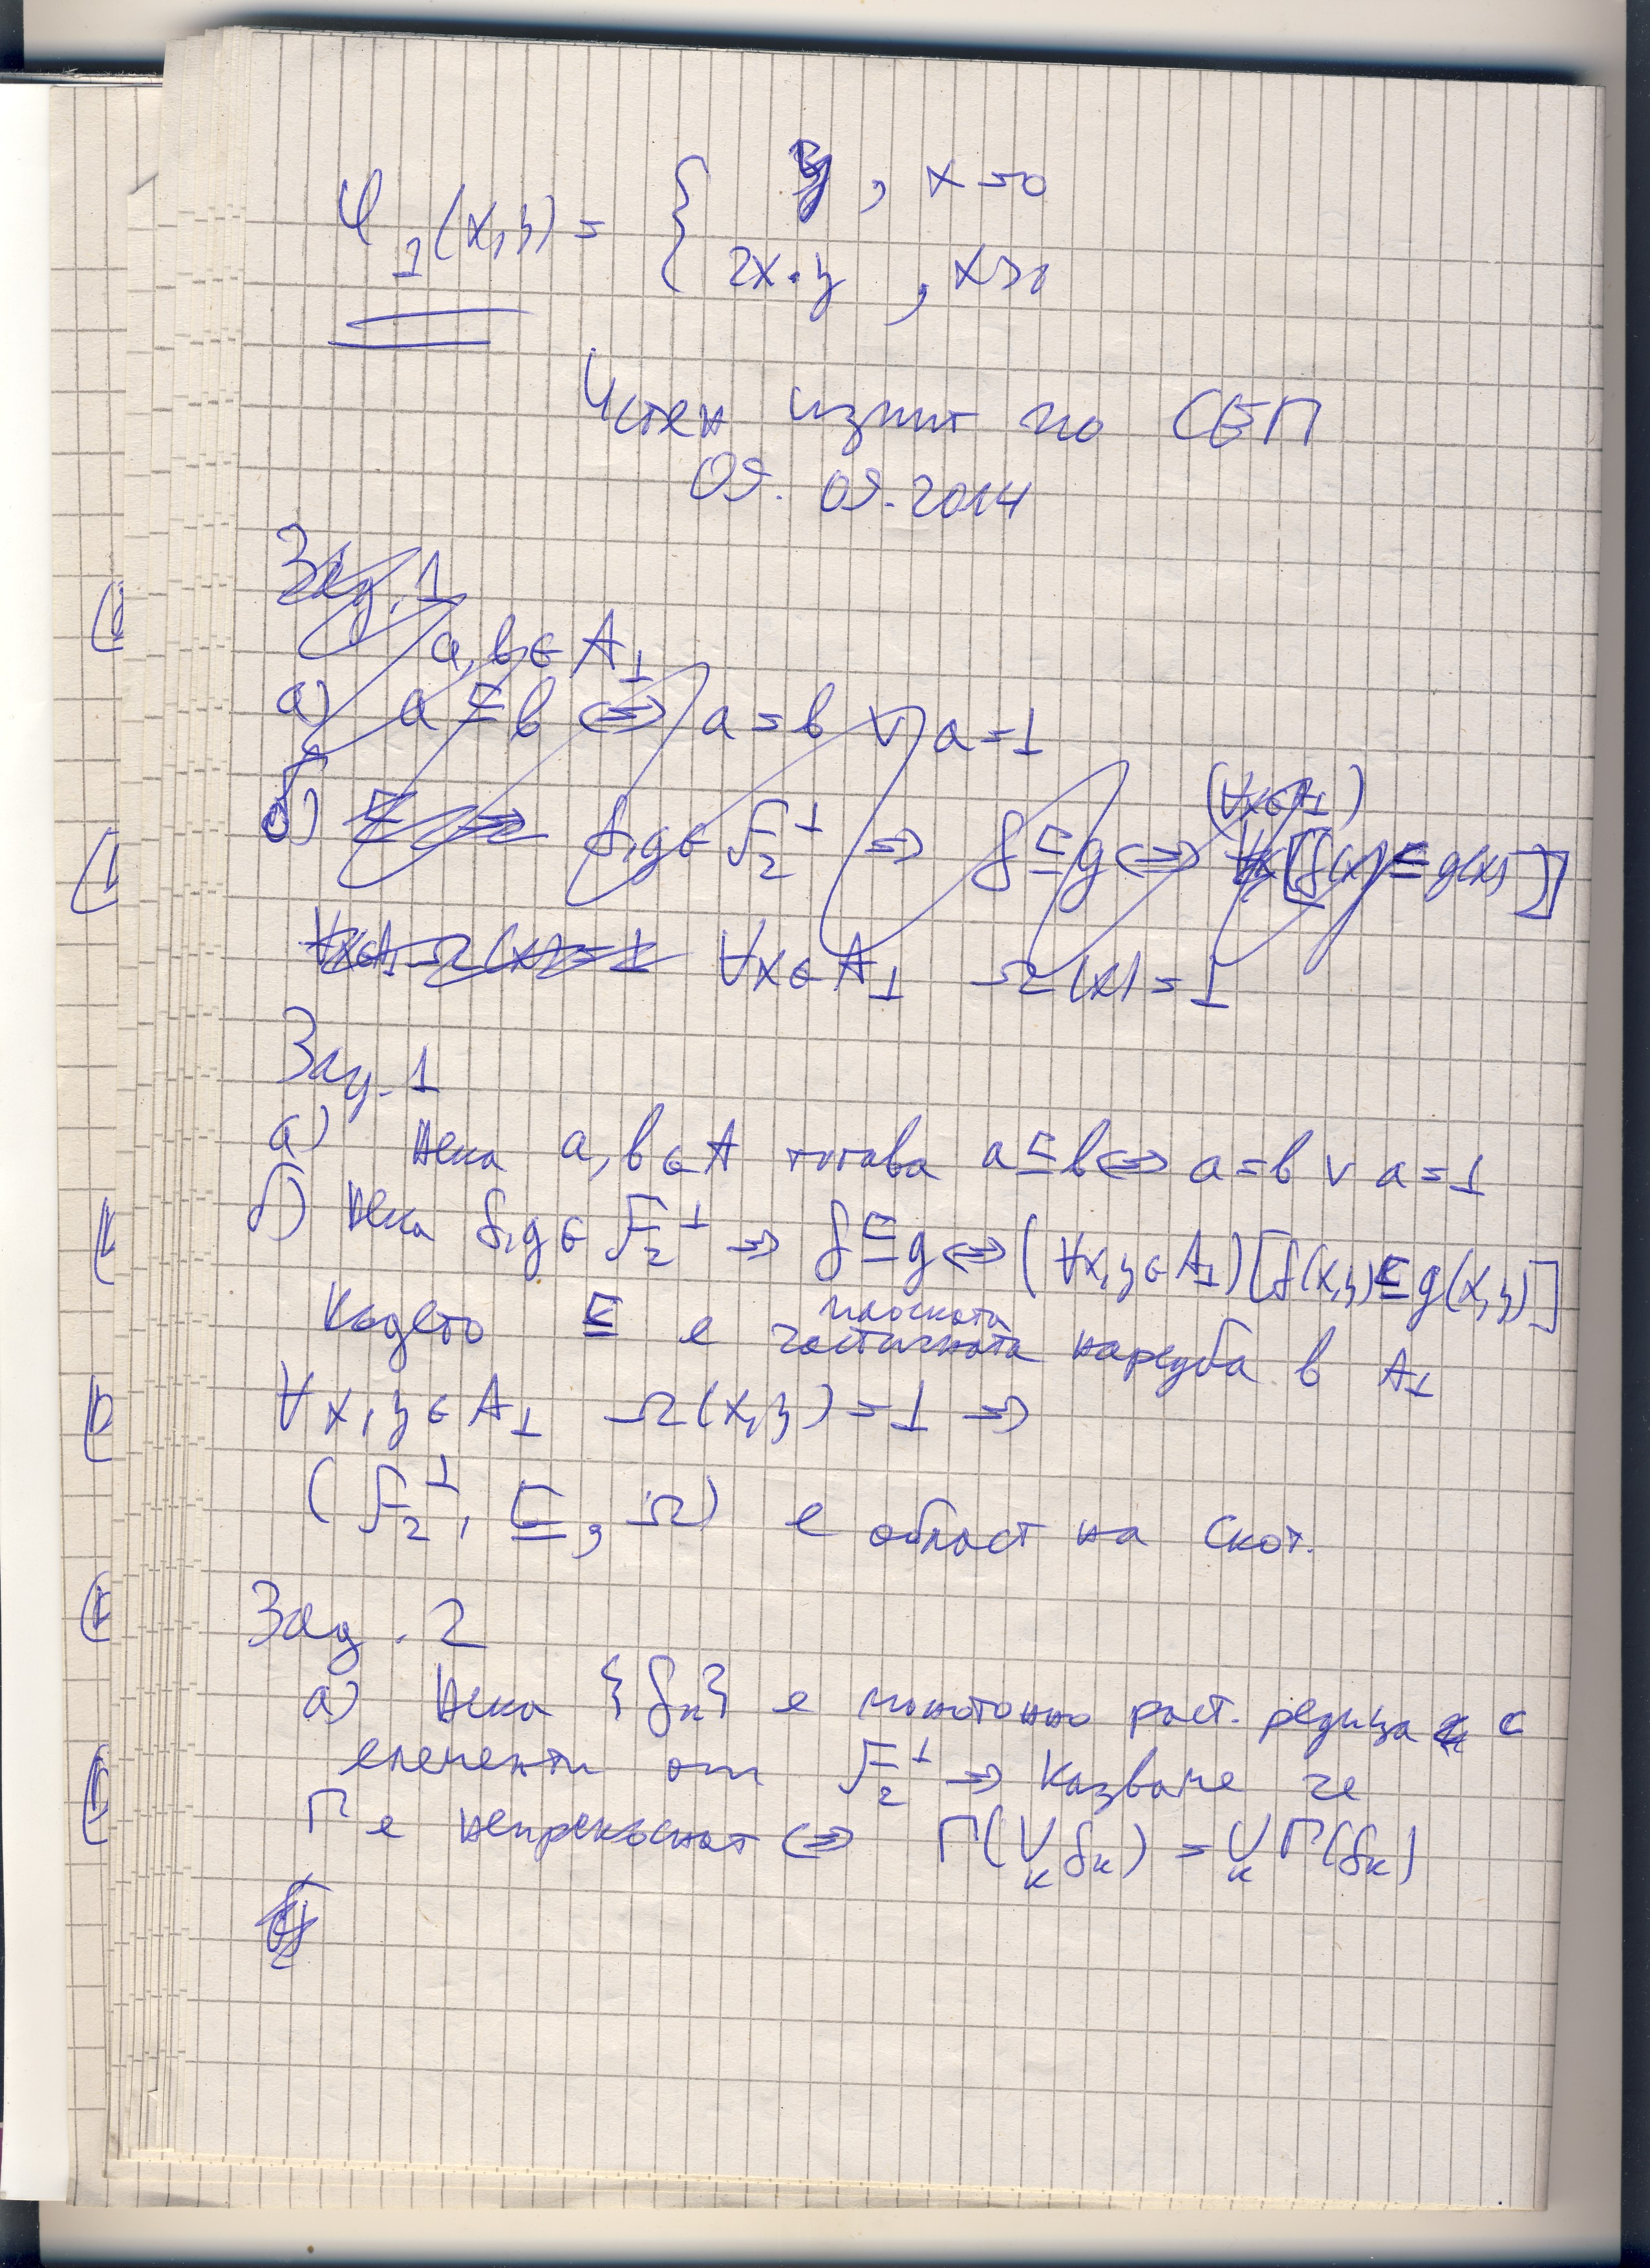 φ₁(x,y) = { y, x=0
2x.y, x>0
Устен изпит по СЕП
09.09.2014
Зад. 1
a, b ∈ A⊥
а) a ⊑ b ⇔ a = b ∨ a = ⊥
б) f, g ∈ F₂^⊥ ⇒ f ⊑ g ⇔ (∀x∈A⊥) [f(x) ⊑ g(x)]
∀x∈A⊥ Ω(x) = ⊥ ∀x∈A⊥ Ω(x) = ⊥
Зад. 1
а) Нека a, b ∈ A тогава a ⊑ b ⇔ a = b ∨ a = ⊥
б) Нека f, g ∈ F₂^⊥ ⇒ f ⊑ g ⇔ (∀x,y ∈ A⊥) [f(x,y) ⊑ g(x,y)]
плоската
Където ⊑ е частичната наредба в A⊥
∀x,y ∈ A⊥ Ω(x,y) = ⊥ ⇒
(F₂^⊥, ⊑, Ω) е област на Скот.
Зад. 2
а) Нека {fₖ} е монотонно раст. редица с
елементи от F₂^⊥ ⇒ казваме че
Γ е непрекъснат ⇔ Γ(⋃ₖ fₖ) = ⋃ₖ Γ(fₖ)